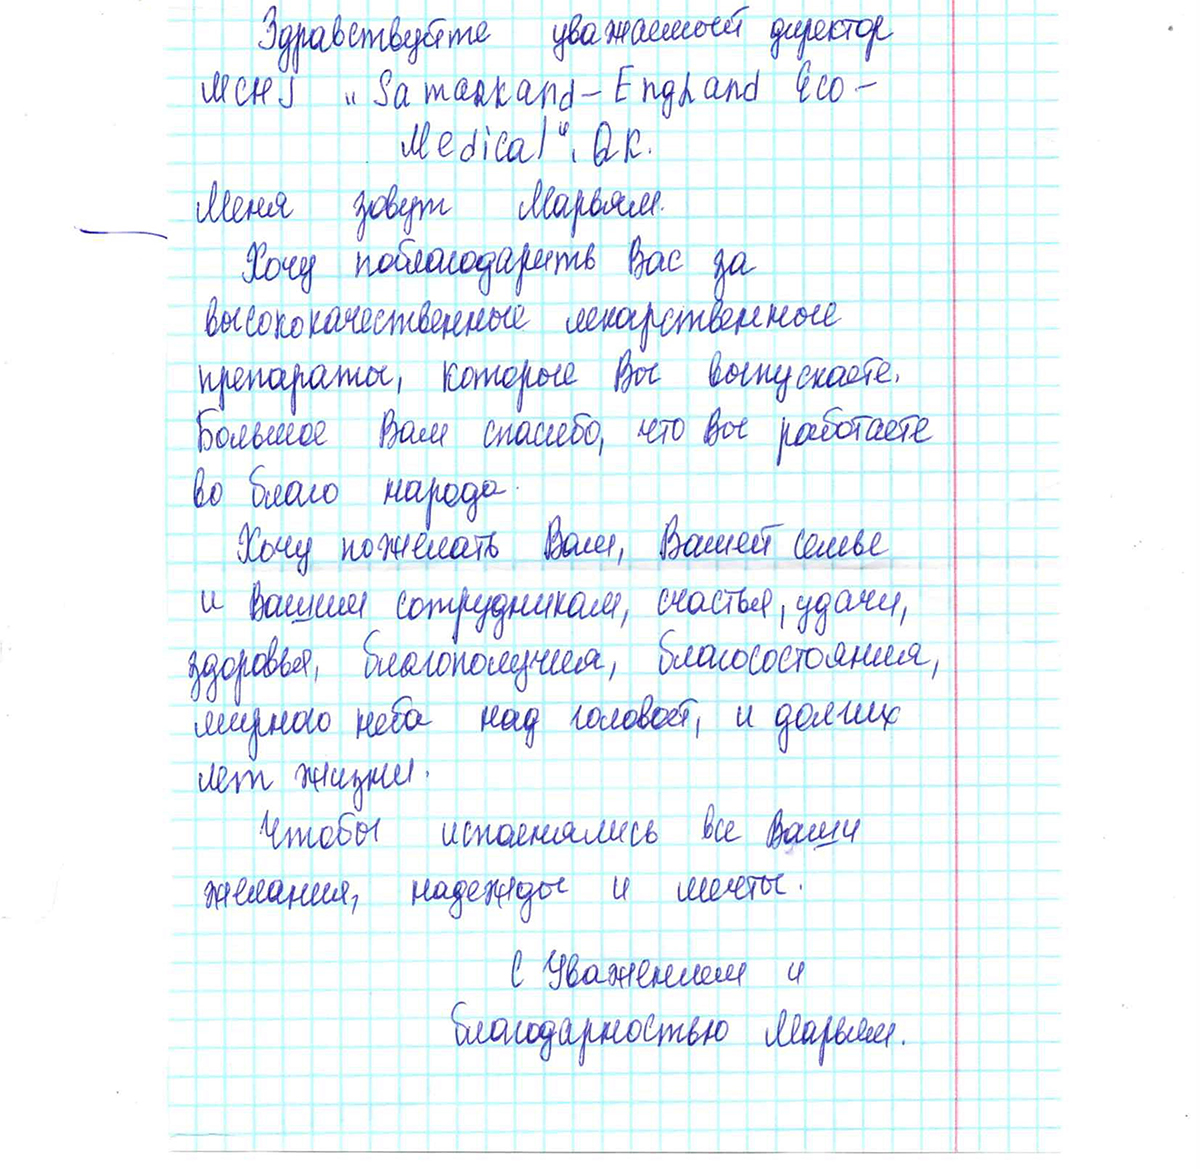 Здравствуйте уважаемый директор
МСНJ "Samarkand-England Eco-
Medical", QK.
Меня зовут Марьям.
Хочу поблагодарить Вас за
высококачественные лекарственные
препараты, которые Вы выпускаете.
Большое Вам спасибо, что Вы работаете
во благо народа.
Хочу пожелать Вам, Вашей семье
и Вашим сотрудникам, счастья, удачи,
здоровья, благополучия, благосостояния,
мирного неба над головой, и долгих
лет жизни.
Чтобы исполнялись все Ваши
желания, надежды и мечты.
С Уважением и
благодарностью Марьям.